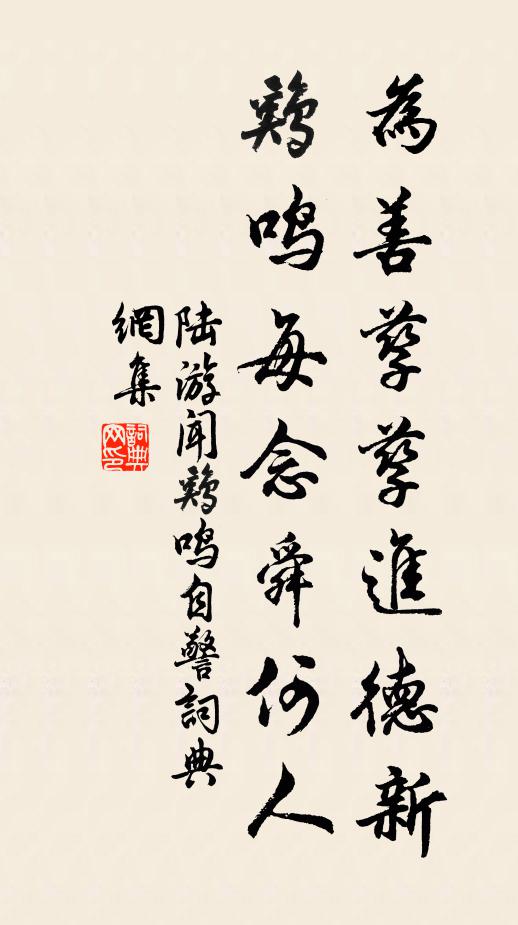 為善孳孳進德新
鷄鳴每念舜何人
陆游闻鷄鳴自警詞典
網集
詞典網印